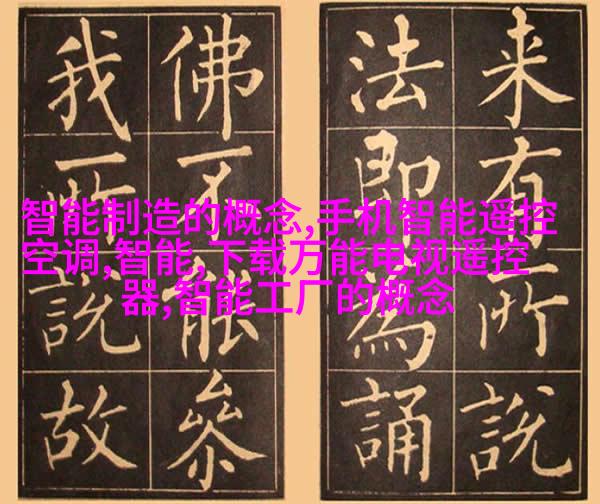 来有所說
法即為誦
佛不能叅
我所說故
智能制造的概念,手机智能遥控
空调,智能,下载万能电视遥控
器,智能工厂的概念